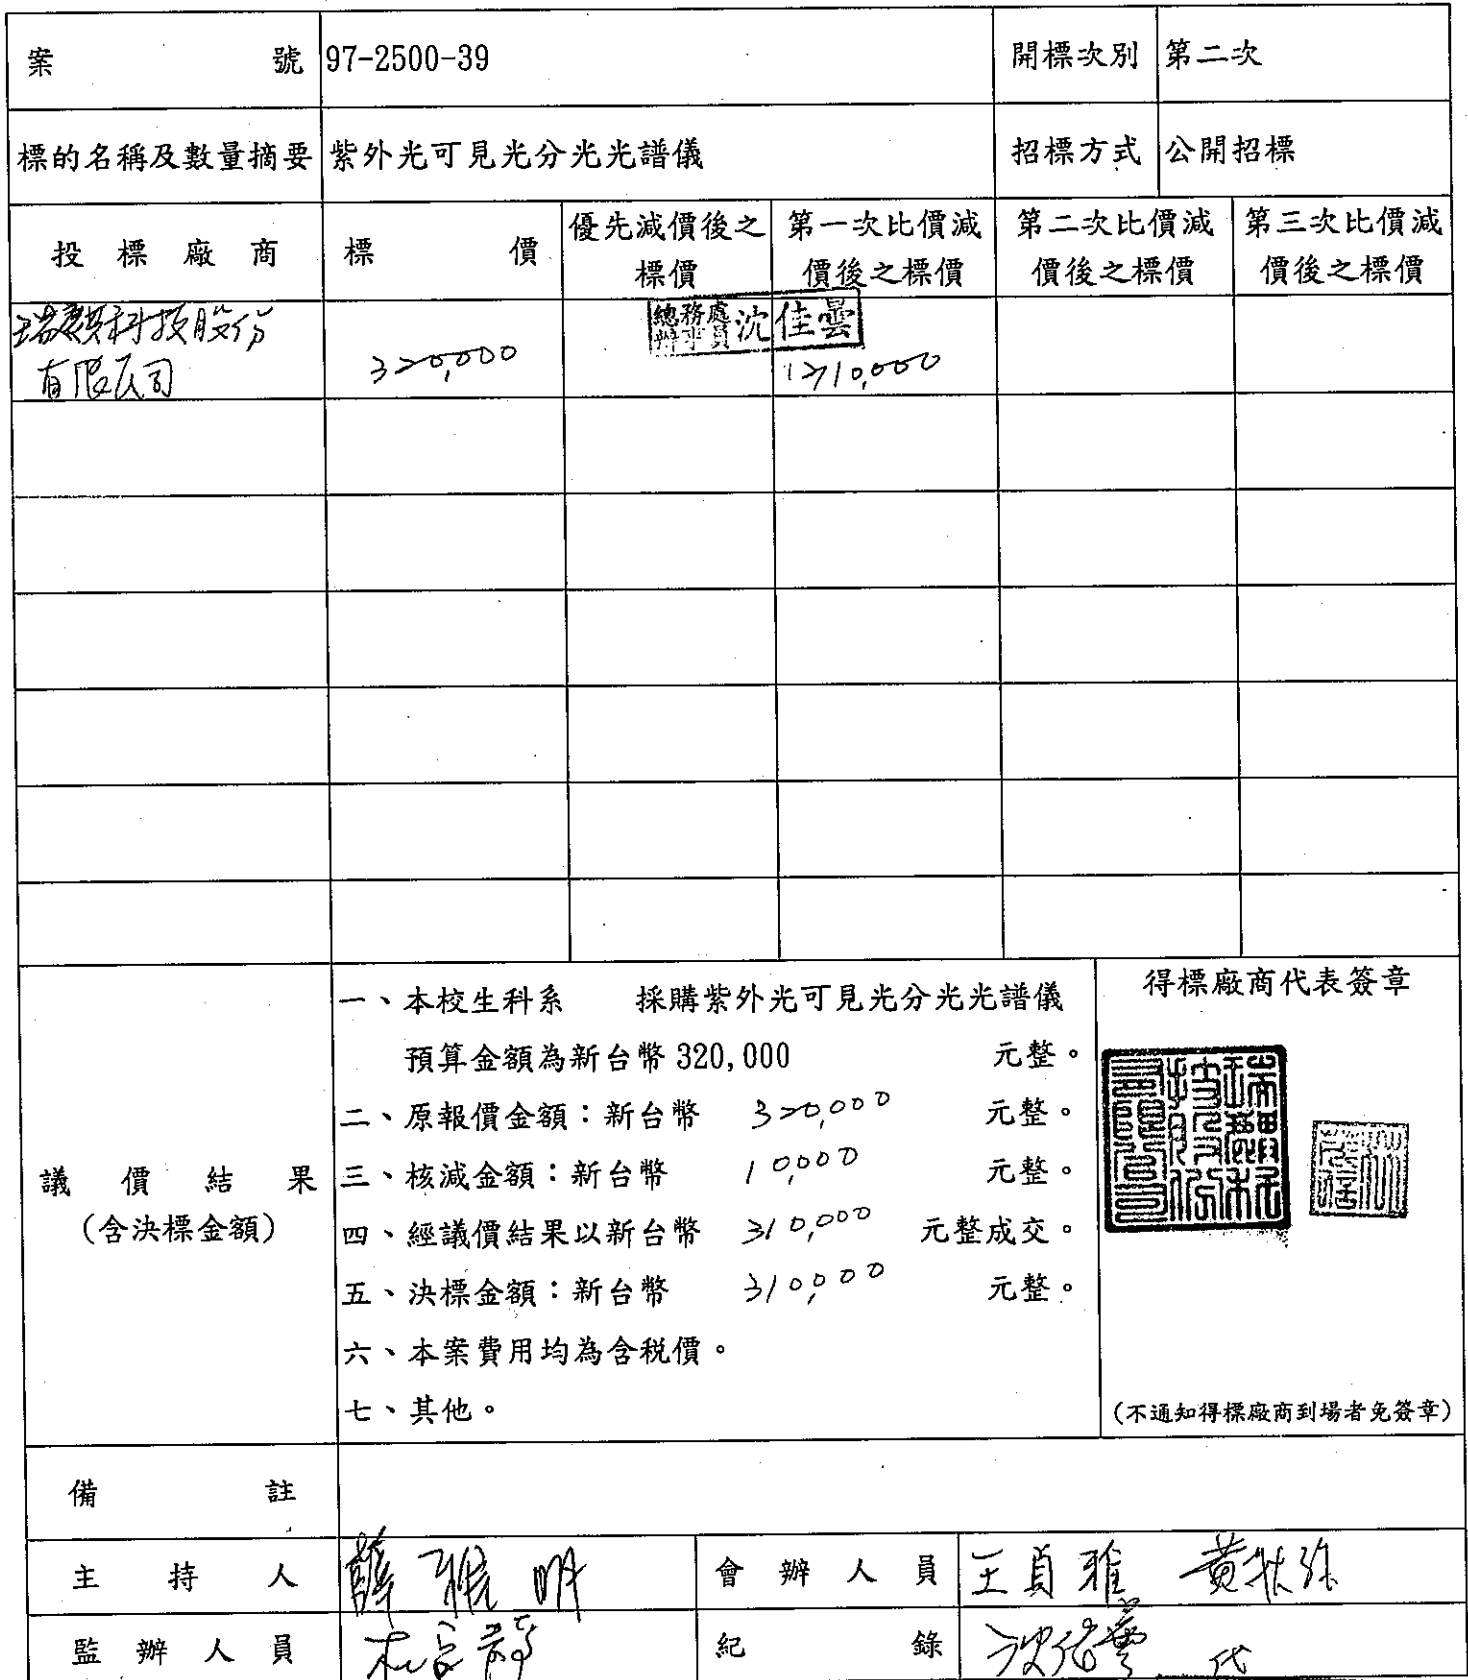 案 號 97-2500-39 開標次別 第二次
標的名稱及數量摘要 紫外光可見光分光光譜儀 招標方式 公開招標
投標廠商 標 價 優先減價後之標價 第一次比價減價後之標價 第二次比價減價後之標價 第三次比價減價後之標價
總務處
辦事員 沈佳雲
瑞麒科技股份
有限公司 320,000 310,000
議價結果
(含決標金額)
一、本校生科系 採購紫外光可見光分光光譜儀
預算金額為新台幣 320,000 元整。
二、原報價金額：新台幣 320,000 元整。
三、核減金額：新台幣 10,000 元整。
四、經議價結果以新台幣 310,000 元整成交。
五、決標金額：新台幣 310,000 元整。
六、本案費用均為含稅價。
七、其他。
得標廠商代表簽章
(不通知得標廠商到場者免簽章)
備 註
主持人 會辦人員 王貞雅
監辦人員 紀 錄 沈佳雲 代